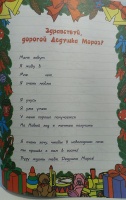 Здравствуй,
дорогой Дедушка Мороз!
Меня зовут
Я живу в
Мне лет
Я очень люблю
Я учусь
Я уже умею
У меня хорошо получается
На Новый год я мечтаю получить
Я очень хочу, чтобы в наступающем году
Буду ждать тебя, Дедушка Мороз!